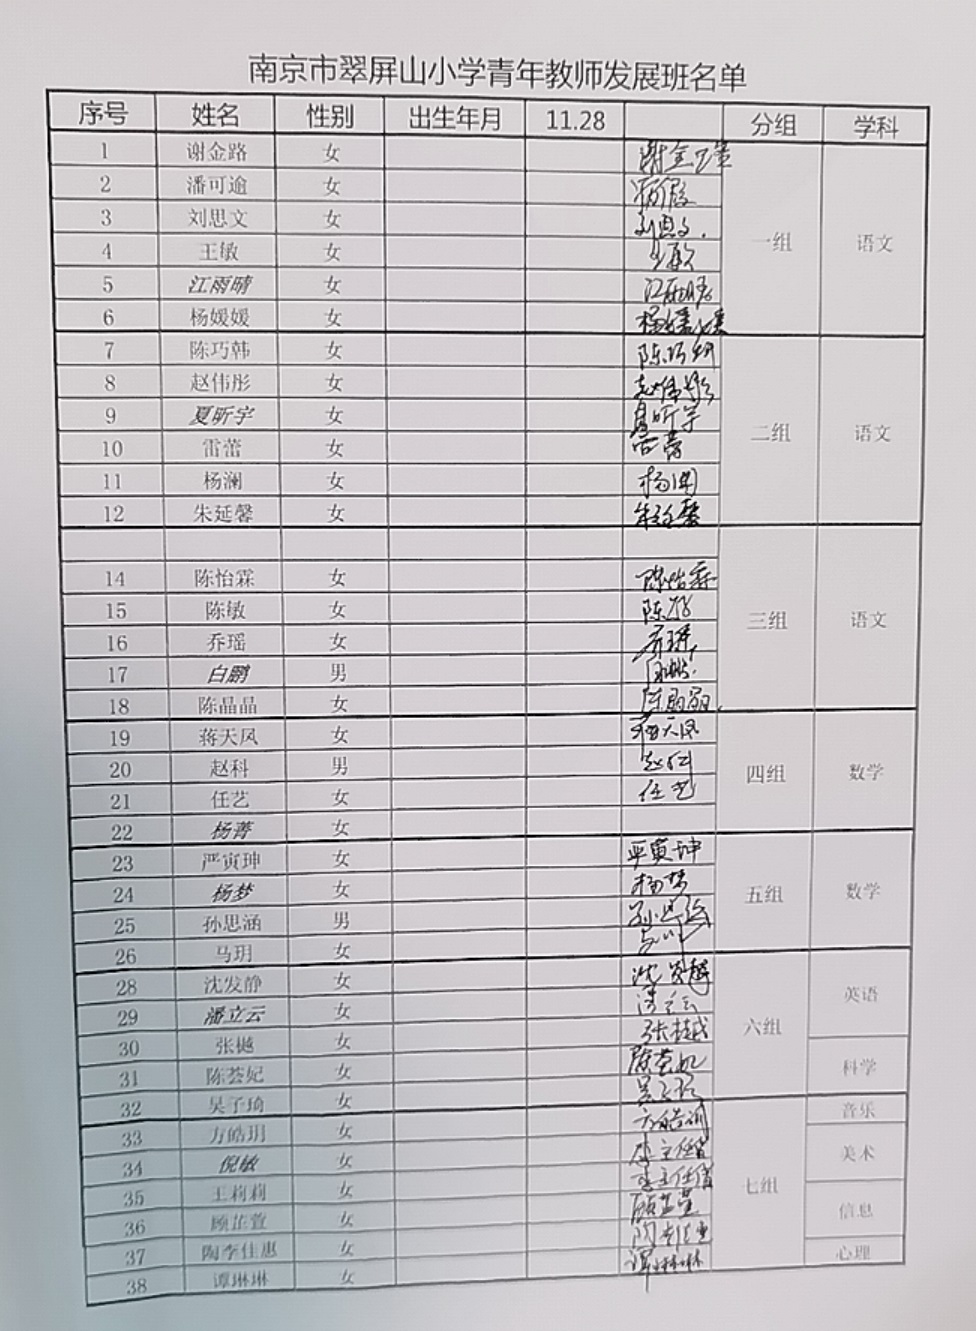 南京市翠屏山小学青年教师发展班名单
序号 姓名 性别 出生年月 11.28 分组 学科
1 谢金路 女 谢金路 一组 语文
2 潘可逾 女
3 刘思文 女 刘思文
4 王敏 女 王敏
5 江雨晴 女 江雨晴
6 杨媛媛 女 杨媛媛
7 陈巧韩 女 陈巧韩 二组 语文
8 赵伟彤 女 赵伟彤
9 夏昕宇 女 夏昕宇
10 雷蕾 女 雷蕾
11 杨澜 女 杨澜
12 朱延馨 女 朱延馨
三组 语文
14 陈怡霖 女 陈怡霖
15 陈敏 女 陈敏
16 乔瑶 女 乔瑶
17 白鹏 男 白鹏
18 陈晶晶 女 陈晶晶
19 蒋天凤 女 蒋天凤 四组 数学
20 赵科 男 赵科
21 任艺 女 任艺
22 杨菁 女
23 严寅珅 女 严寅珅 五组 数学
24 杨梦 女 杨梦
25 孙思涵 男 孙思涵
26 马玥 女
28 沈发静 女 沈发静 六组 英语
29 潘立云 女 潘立云
30 张樾 女 张樾 科学
31 陈荟妃 女 陈荟妃
32 吴子琦 女 吴子琦 七组 音乐
33 方皓玥 女 方皓玥 美术
34 倪敏 女
35 王莉莉 女 信息
36 顾芷萱 女 顾芷萱
37 陶李佳惠 女 心理
38 谭琳琳 女 谭琳琳